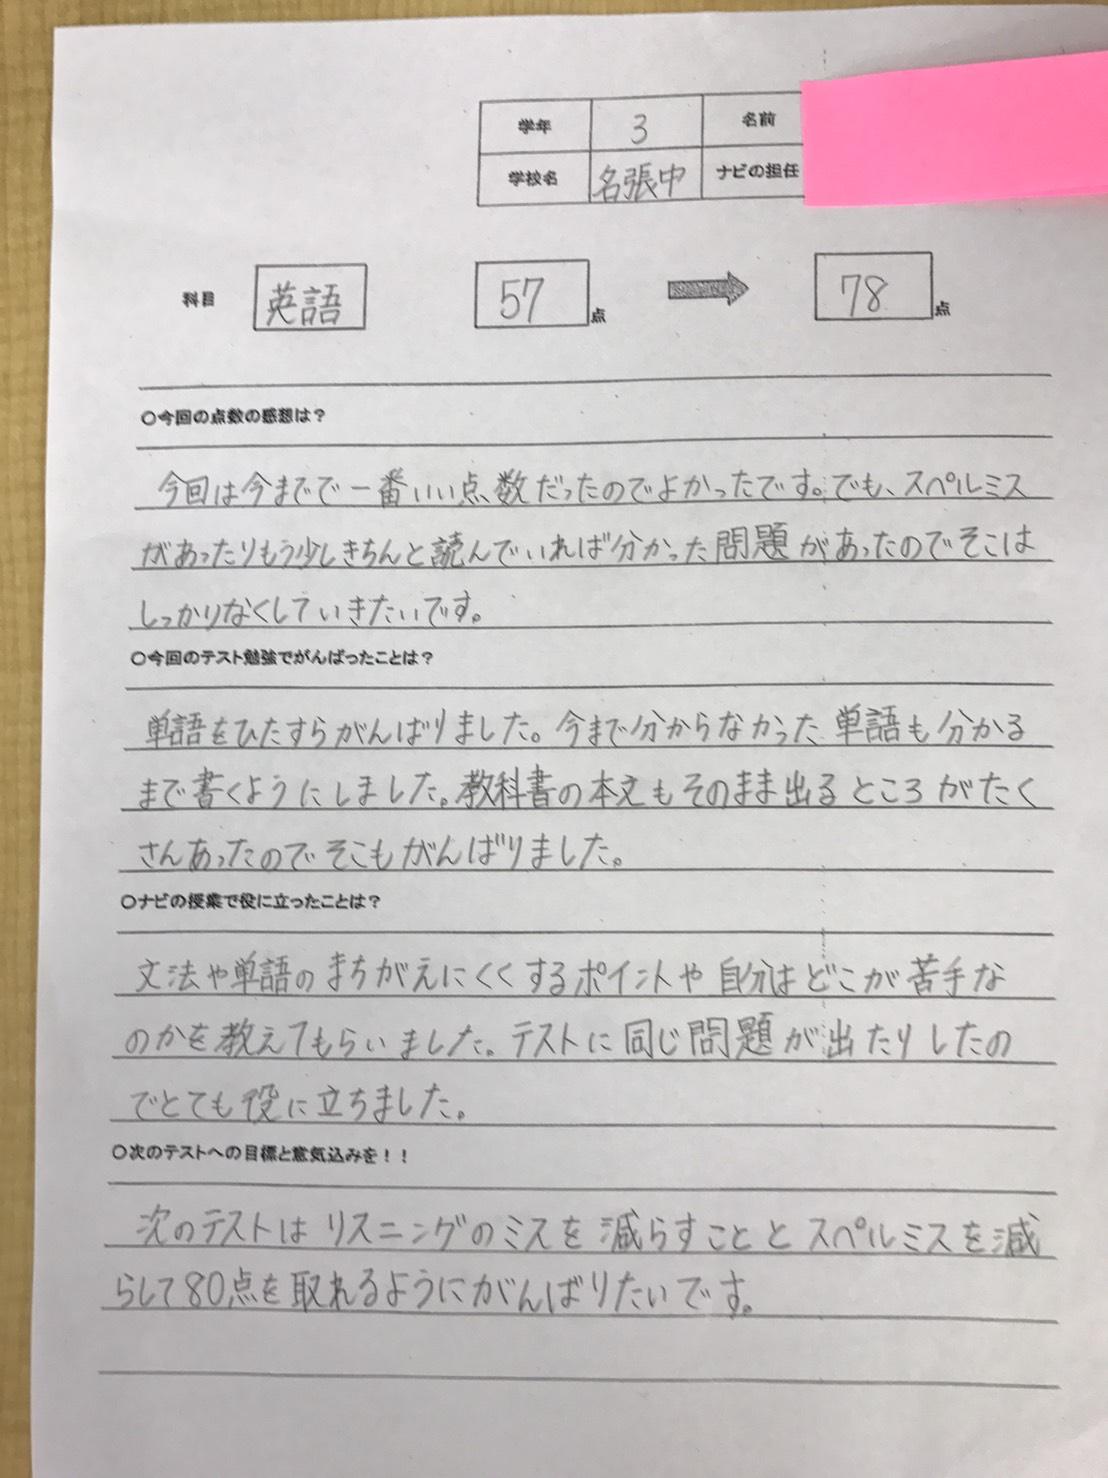 学年 3 名前
学校名 名張中 ナビの担任
科目 英語 57点 78点
○今回の点数の感想は?
今回は今までで一番いい点数だったのでよかったです。でも、スペルミス
があったりもう少しきちんと読んでいれば分かった問題があったのでそこは
しっかりなくしていきたいです。
○今回のテスト勉強でがんばったことは?
単語をひたすらがんばりました。今まで分からなかった単語も分かる
まで書くようにしました。教科書の本文もそのまま出るところがたく
さんあったのでそこもがんばりました。
○ナビの授業で役に立ったことは?
文法や単語のまちがえにくくするポイントや自分はどこが苦手な
のかを教えてもらいました。テストに同じ問題が出たりしたの
でとても役に立ちました。
○次のテストへの目標と意気込みを!!
次のテストはリスニングのミスを減らすこととスペルミスを減
らして80点を取れるようにがんばりたいです。